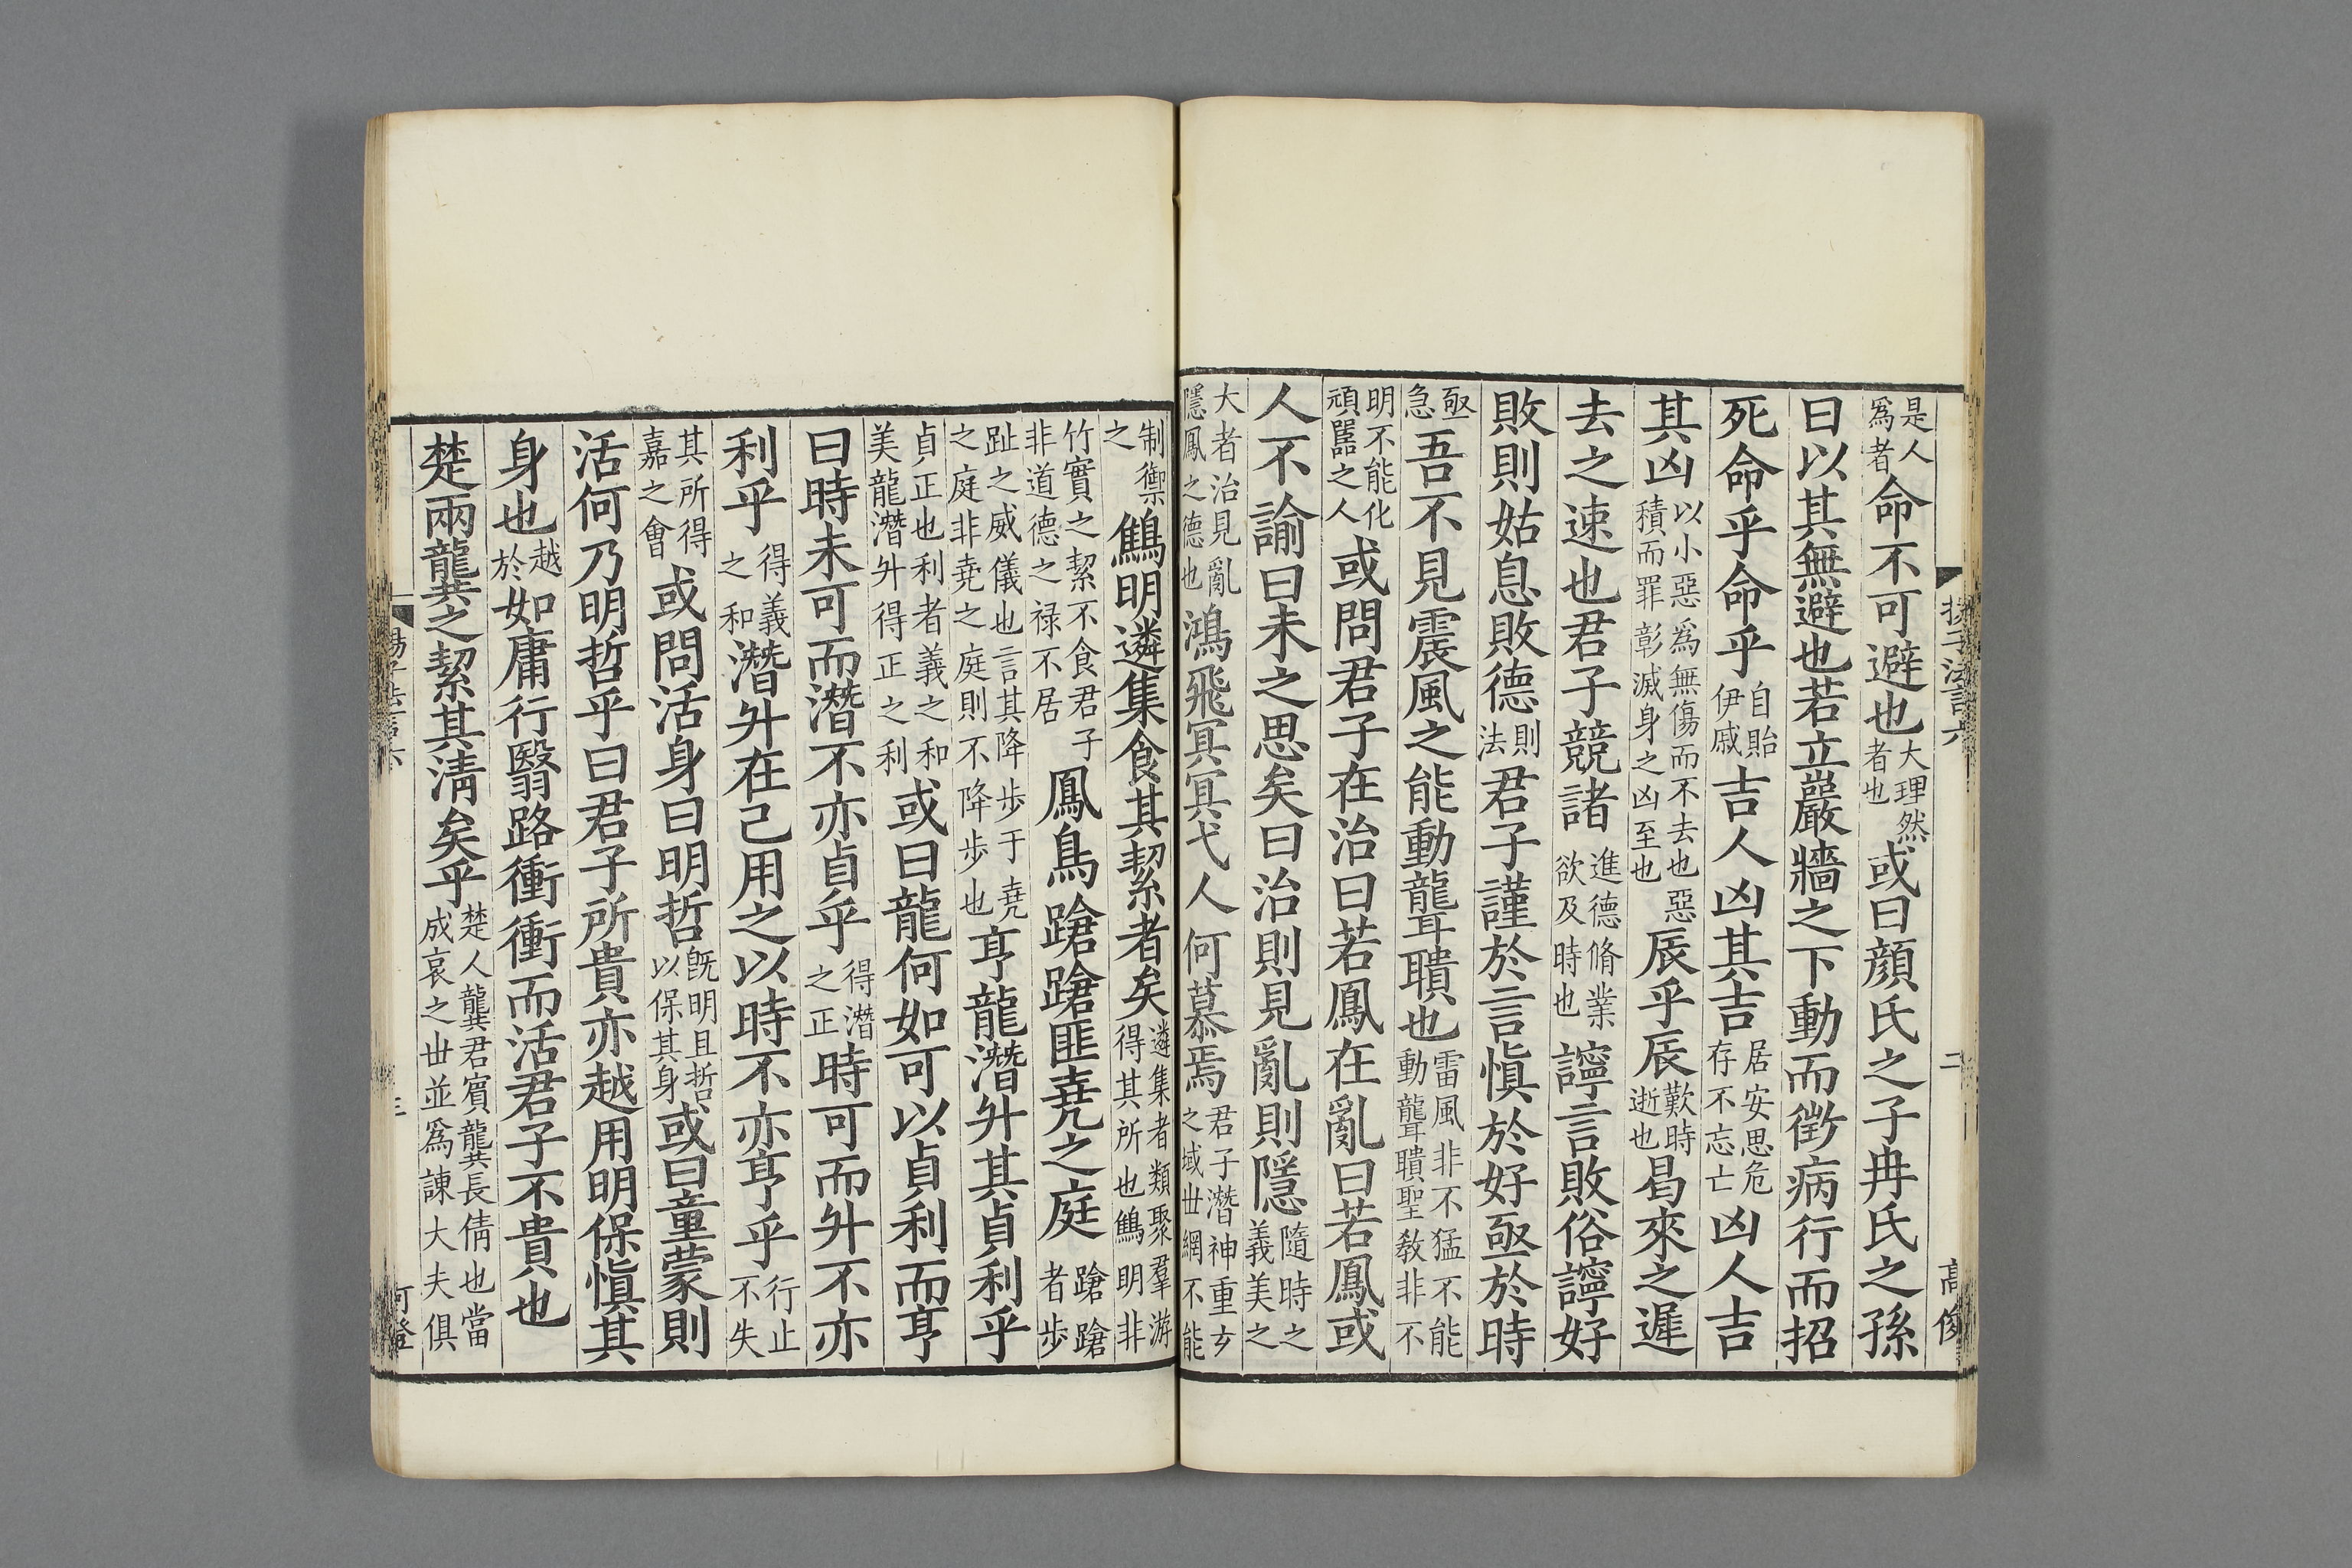 是人爲者命不可避也大理然者也或曰顔氏之子冉氏之孫
曰以其無避也若立巖牆之下動而徵病行而招
死命乎命乎自貽伊戚吉人凶其吉居安思危存不忘亡凶人吉
其凶以小惡爲無傷而不去也惡積而罪彰滅身之凶至也辰乎辰歎時逝也曷來之遲
去之速也君子競諸進德脩業欲及時也䛿言敗俗䛿好
敗則姑息敗德則法君子謹於言愼於好亟於時
亟急吾不見震風之能動聾聵也雷風非不猛不能動聾聵聖教非不
明不能化頑嚚之人或問君子在治曰若鳳在亂曰若鳳或
人不諭曰未之思矣曰治則見亂則隱隨時之義美之
大者治見亂隱鳳之德也鴻飛冥冥弋人何慕焉君子潛神重玄之域世網不能
制禦之鷦明遴集食其絜者矣遴集者類聚羣游得其所也鷦明非
竹實之絜不食君子非道德之祿不居鳳鳥蹌蹌匪堯之庭蹌蹌者步
趾之威儀也言其降步于堯之庭非堯之庭則不降步也亨龍潛升其貞利乎
貞正也利者義之和美龍潛升得正之利或曰龍何如可以貞利而亨
曰時未可而潛不亦貞乎得潛之正時可而升不亦
利乎得義之和潛升在己用之以時不亦亨乎行止不失
其所得嘉之會或問活身曰明哲旣明且哲以保其身或曰童蒙則
活何乃明哲乎曰君子所貴亦越用明保愼其
身也越於如庸行翳路衝衝而活君子不貴也
楚兩龔之絜其清矣乎楚人龔君賓龔長倩也當成哀之世並爲諫大夫俱